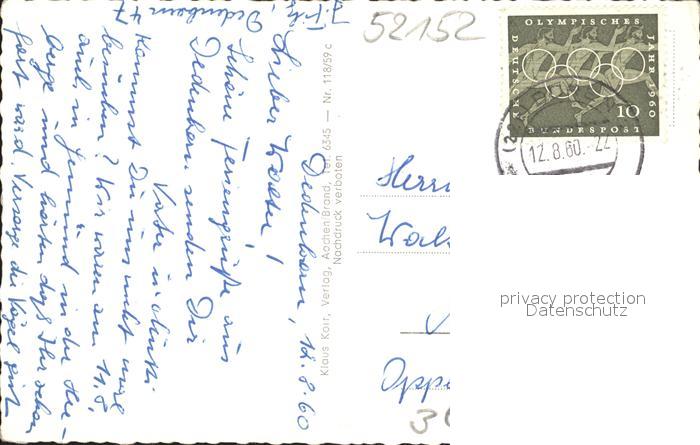 Dedenborn, 12.8.60
Lieber Walter!
Schöne Feriengrüße aus
Dedenborn senden Dir
Vater u. Mutti.
Kommst Du uns nicht mal
besuchen? Wir waren am 11.8.
auch in Gemünd in der Her-
berge und hörten daß Ihr schon
fort ward. Versorge die Vögel gut
Dedenborn 47
Klaus Korr, Verlag, Aachen-Brand, Tel. 6345 — Nr. 118/59 c
Nachdruck verboten
52152
OLYMPISCHES
JAHR 1960
DEUTSCHE
BUNDESPOST
10
12.8.60.-22
Herrn
Walt
Oppe
privacy protection
Datenschutz